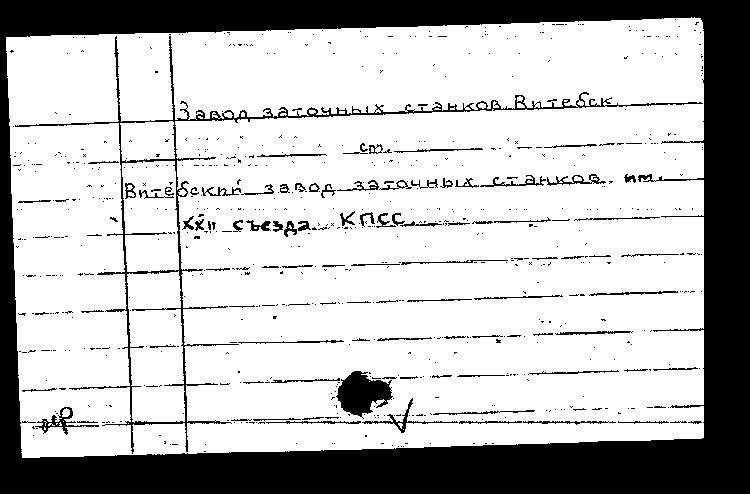 Завод заточных станков. Витебск
см.
Витебский завод заточных станков им.
XXII съезда КПСС.